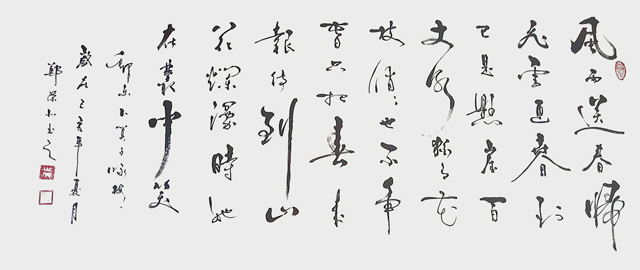 風雨送春歸
飛雪迎春到
已是懸崖百
丈冰猶有花
枝俏〻也不争
春只把春来
報待到山
花爛漫時她
在叢中笑
卜算子咏梅
歲在己亥年夏月
鄭